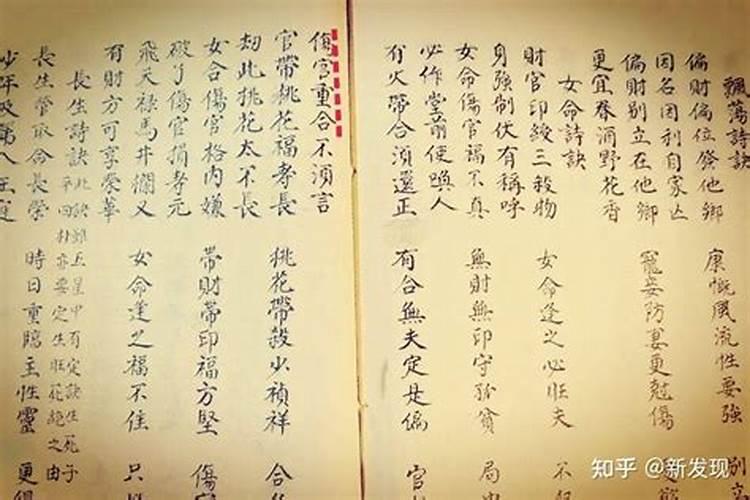 飄蕩詩訣
偏財偏位發他鄉 慷慨風流性要強 別立
因名因利自家亾
偏財別立在他鄉 寵妾防妻更尅傷
更宜春酒野花香
女命詩訣
財官印綬三般物 女命逢之必旺夫 不
身強制伏有稱呼
女命傷官福不真 無財無印守孤貧 局中
必作堂前使喚人
有火帶合須還正 有合無夫定是偏 官
傷官重合不須言
官帶桃花福壽長 桃花帶殺少禎祥 合
刼此桃花太不長
女合傷官格內嫌 帶財帶印福方堅 傷官
破了傷官損壽元
飛天祿馬井欄叉 女命逢之福不佳 只
有財方可享榮華
長生詩訣 此訣雖五星中有定訣生死子
平四 亦要定生旺 絕之由
長生管取命長榮 時日重臨主性靈 更得
少年及第入王庭
知乎 @新发现